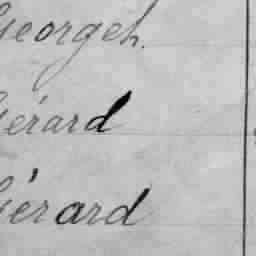 Georges.
Gérard
Gérard